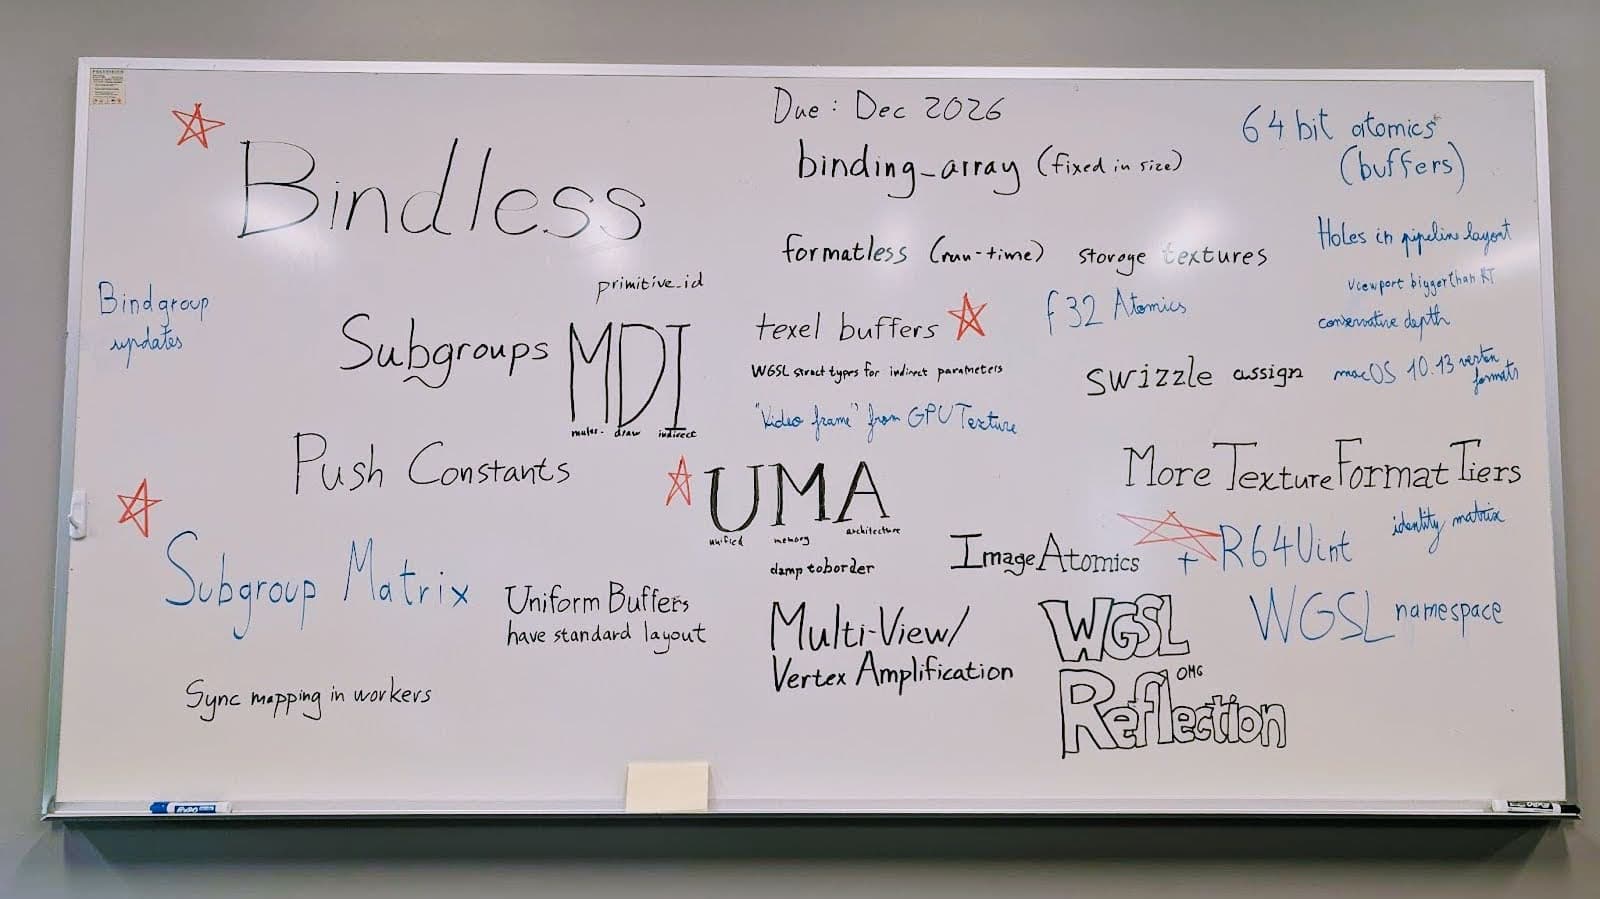 Due: Dec 2026
Bindless
binding_array (fixed in size)
64 bit atomics
(buffers)
formatless (run-time) storage textures
Holes in pipeline layout
viewport bigger than RT
conservative depth
macOS 10.13 vertex
formats
Bindgroup
updates
primitive_id
Subgroups
MDI
multi- draw indirect
texel buffers
f32 Atomics
WGSL struct types for indirect parameters
swizzle assign
"Video frame" from GPUTexture
Push Constants
UMA
unified memory architecture
More Texture Format Tiers
identity matrix
Subgroup Matrix
Image Atomics + R64Uint
clamp to border
Uniform Buffers
have standard layout
Multi-View/
Vertex Amplification
WGSL
Reflection
OMG
WGSL namespace
Sync mapping in workers
EXPO